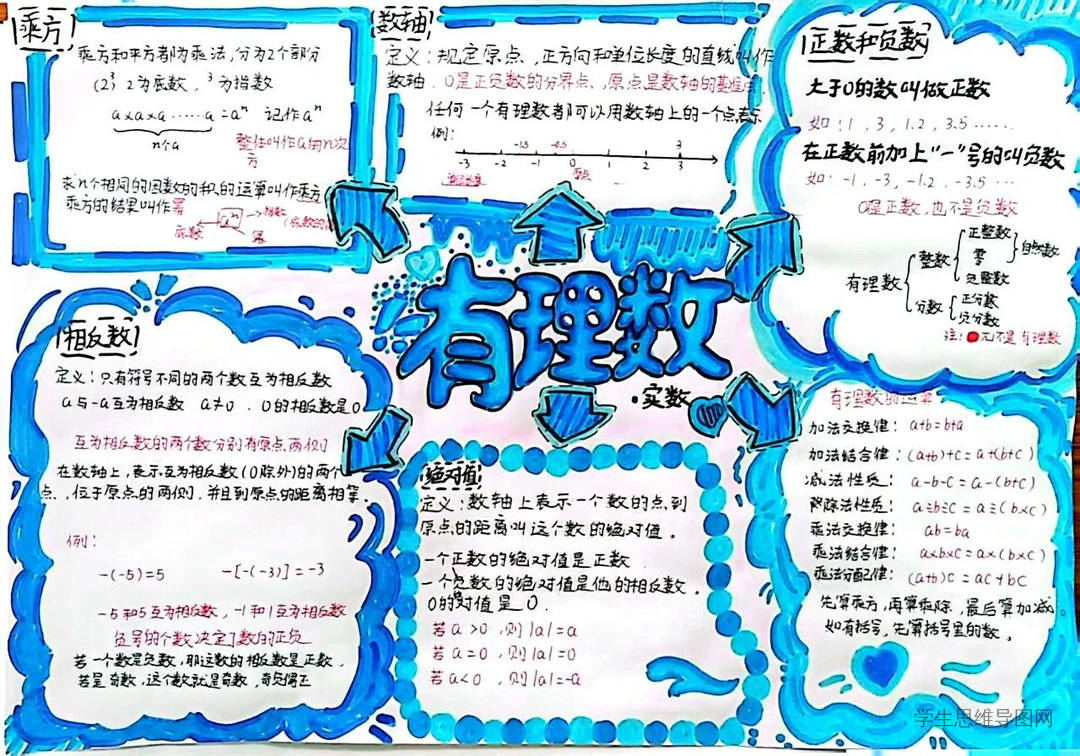 乘方
乘方和平方者都为乘法，分为2个部分
(2³ 2为底数， ³为指数
a×a×a……a = aⁿ 记作aⁿ
n个a
整体叫作a的n次
方
求n个相同的因数的积的运算叫作乘方
乘方的结果叫作幂
aⁿ
指数
底数
幂
数轴
定义：规定原点、正方向和单位长度的直线叫作
数轴．0是正负数的分界点、原点是数轴的基准点．
任何一个有理数都可以用数轴上的一个点表示
例：
-1.5 -0.5 3
-3 -2 -1 0 1 2 3
单位长度 原点
正数和负数
大于0的数叫做正数
如：1，3，1.2，3.5……
在正数前加上“-”号的叫负数
如：-1，-3，-1.2，-3.5…
0是正数，也不是负数
有理数
整数
正整数
零
负整数
自然数
分数
正分数
负分数
注： 不是有理数
有理数
·实数
相反数
定义：只有符号不同的两个数互为相反数
a与-a互为相反数 a≠0．0的相反数是0
互为相反数的两个数分别有原点两侧
在数轴上，表示互为相反数(0除外)的两个
点、位于原点的两侧，并且到原点的距离相等。
例：
-(-5)=5 -[-(-3)]=-3
-5和5互为相反数，-1和1互为相反数
负号的个数决定了数的正负
若一个数是负数，那这数的相反数是正数，
若是奇数，这个数就是奇数，奇负偶正
绝对值
定义：数轴上表示一个数的点到
原点的距离叫这个数的绝对值．
一个正数的绝对值是正数．
一个负数的绝对值是他的相反数．
0的对值是0．
若a>0，则|a|=a
若a=0，则|a|=0
若a<0，则|a|=-a
有理数的运算
加法交换律：a+b=b+a
加法结合律：(a+b)+c=a+(b+c)
减法性质：a-b-c=a-(b+c)
除法性质：a÷b÷c=a÷(b×c)
乘法交换律：ab=ba
乘法结合律：a×b×c=a×(b×c)
乘法分配律：(a+b)c=ac+bc
先算乘方，再算乘除，最后算加减。
如有括号，先算括号里的数。
学生思维导图网